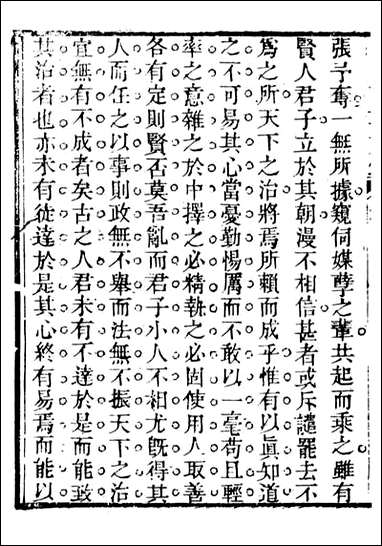 張予奪一無所據窺伺媒孽之輩共起而乘之雖有
賢人君子立於其朝漫不相信甚者或斥譴罷去不
爲之所天下之治將焉所賴而成乎惟有以眞知道
之不可易其心當憂勤惕厲而不敢以一毫苟且輕
率之意雜之於中擇之必精執之必固使用人取善
各有定則賢否莫吾亂而君子小人不相尤旣得其
人而任之以事則政無不舉而法無不振天下之治
宜無有不成者矣古之人君未有不達於是而能致
其治者也亦未有從達於是其心終有易焉而能以